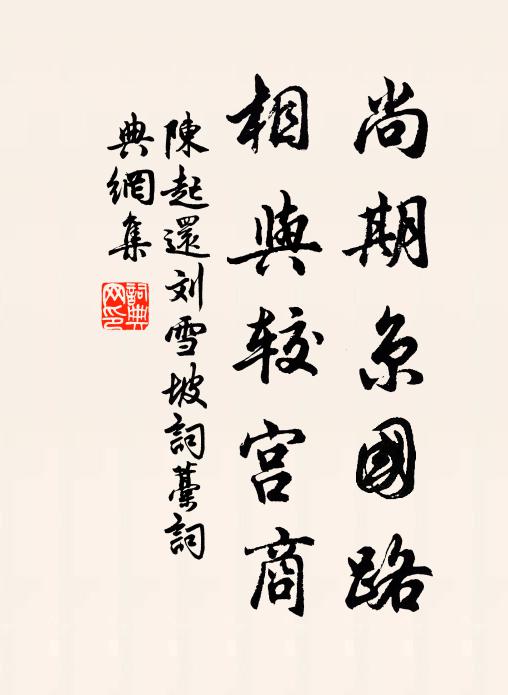 尚期京國路
相與较宫商
陳起還刘雪坡詞藳詞
典網集
詞典網印